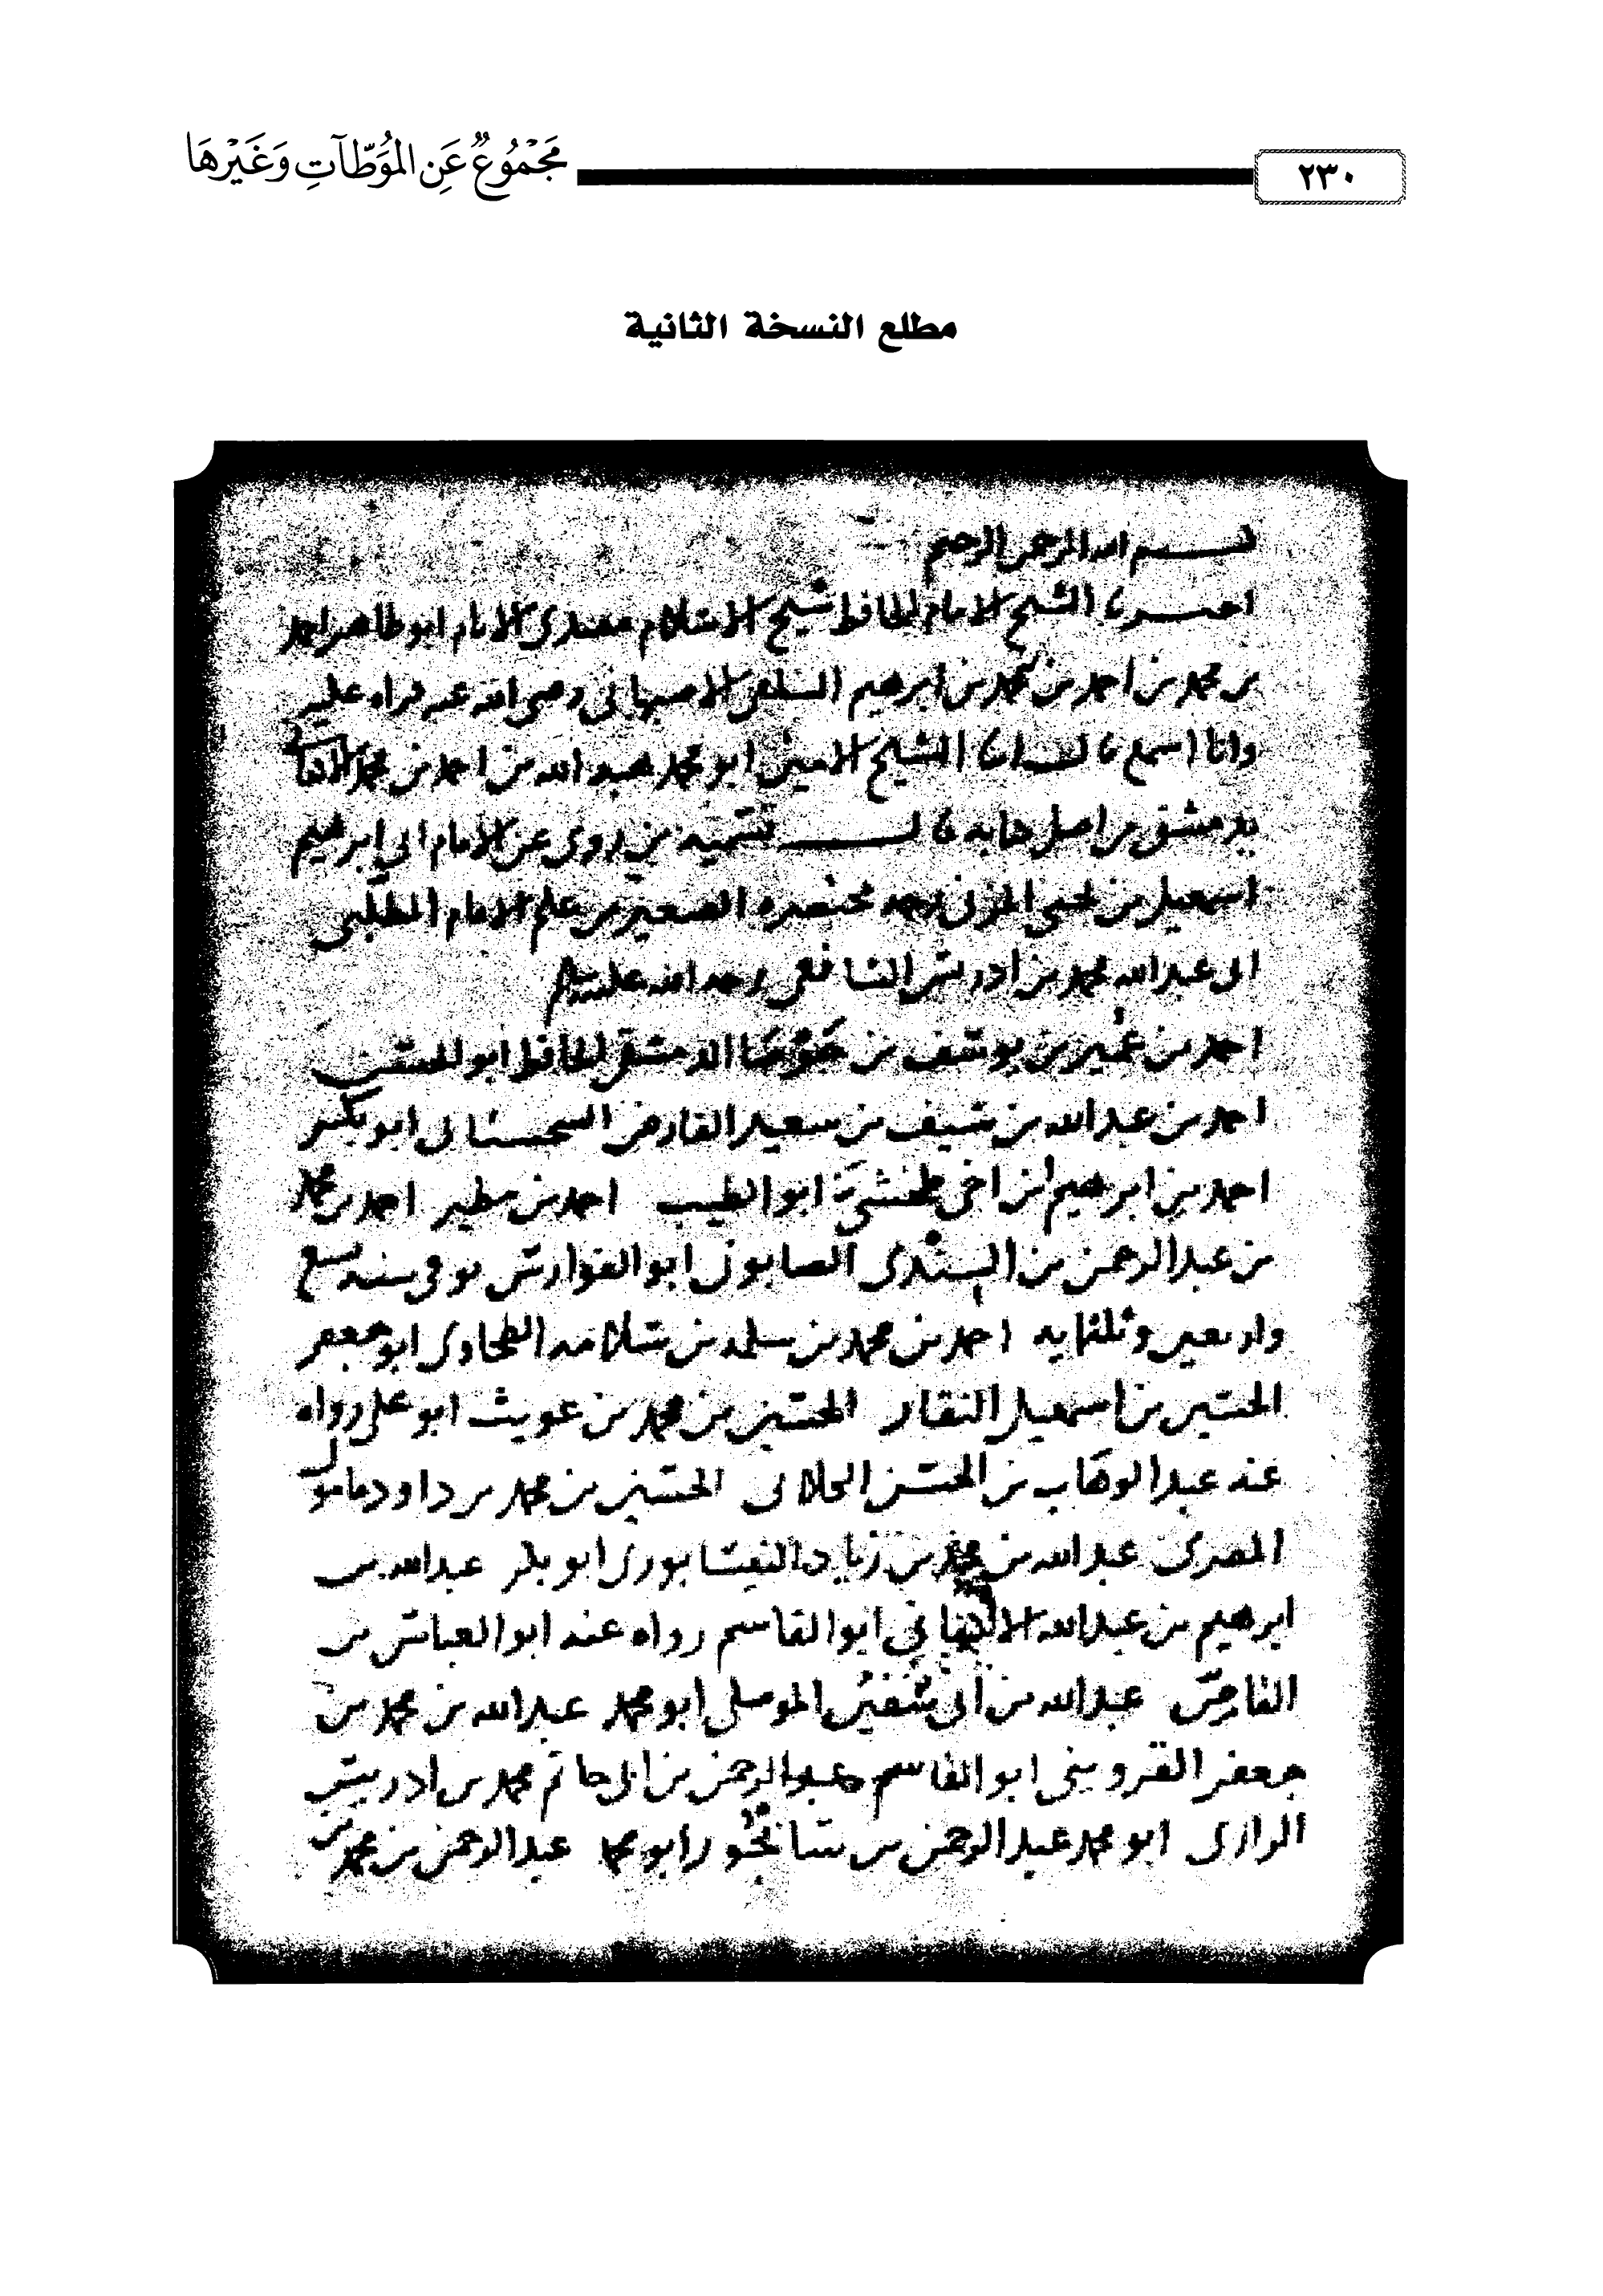 ٢٣٠
مَجْمُوعٌ عَنِ المُوَطّآتِ وَغَيْرِهَا
مطلع النسخة الثانية
بسم الله الرحمن الرحيم
اخبرنا الشيخ الامام الحافظ شيخ الاسلام مقتدى الانام ابو طاهر احمد
بن محمد بن احمد بن محمد بن ابرهيم السلفي الاصبهاني رضي الله عنه قراه عليه
وانا اسمع قال انا الشيخ الامين ابو محمد هبة الله بن احمد بن محمد الاكفاني
بدمشق من اصل كتابه قال تسميه من روى عن الامام ابي ابرهيم
اسمعيل بن يحيى المزني رحمه مختصره الصغير من علم الامام المطلبي
ابي عبدالله محمد بن ادريس الشافعي رحمه الله عليهم
احمد بن عمير بن يوسف بن جوصا الدمشقي الحافظ ابو الحسن
احمد بن عبدالله بن سيف بن سعيد الفارض السجستاني ابو بكر
احمد بن ابرهيم ابن اخي ابو الطيب احمد بن مطير احمد بن محمد
بن عبدالرحمن بن السندي الصابوني ابو الفوارس توفي سنه تسع
واربعين وثلثمايه احمد بن محمد بن سلمه بن سلامه الطحاوي ابو جعفر
الحسين بن اسمعيل النقار الحسين بن محمد بن عويث ابو علي رواه
عنه عبدالوهاب بن الحسن الكلابي الحسين بن محمد بن داود مامون
المصري عبدالله بن محمد بن زياد النيسابوري ابو بكر عبدالله بن
ابرهيم بن عبدالله ابو القاسم رواه عنه ابو العباس بن
القاص عبدالله بن ابي سفين الموصلي ابو محمد عبدالله بن محمد بن
جعفر القزويني ابو القاسم عبدالرحمن بن ابي حاتم محمد بن ادريس
الرازي ابو محمد عبدالرحمن بن ابو محمد عبدالرحمن بن محمد بن